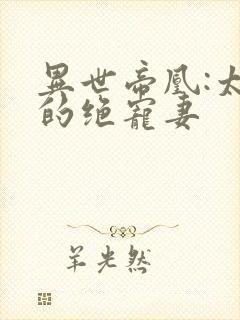 異世帝凰:太
的绝寵妻
羊光然